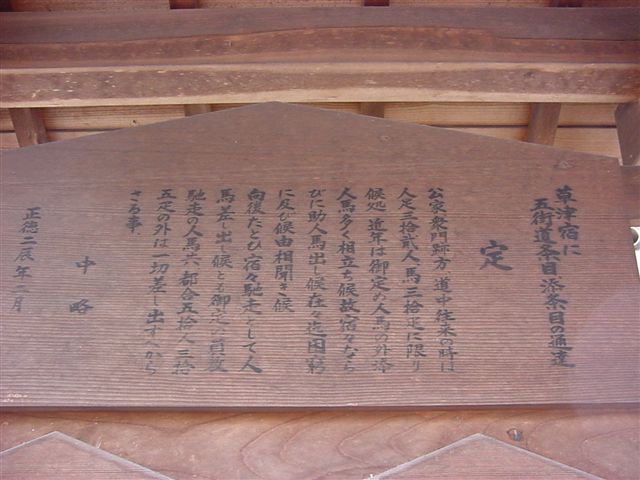 草津宿に
五街道条目、添条目の通達
定
公家衆門跡方、道中往来の時は
人足三拾貳人、馬三拾疋に限り
候処 近年は御定め人馬の外添
人馬多く相立ち候故、宿々なら
びに助人馬出し候在々迄困窮
に及び候由相聞き候
向後たとひ宿々馳走として人
馬差し出し候とも御定の員数
馳走の人馬共、都合五拾人三拾
五疋の外は一切差し出すべから
さる事.
中略
正徳二辰年二月